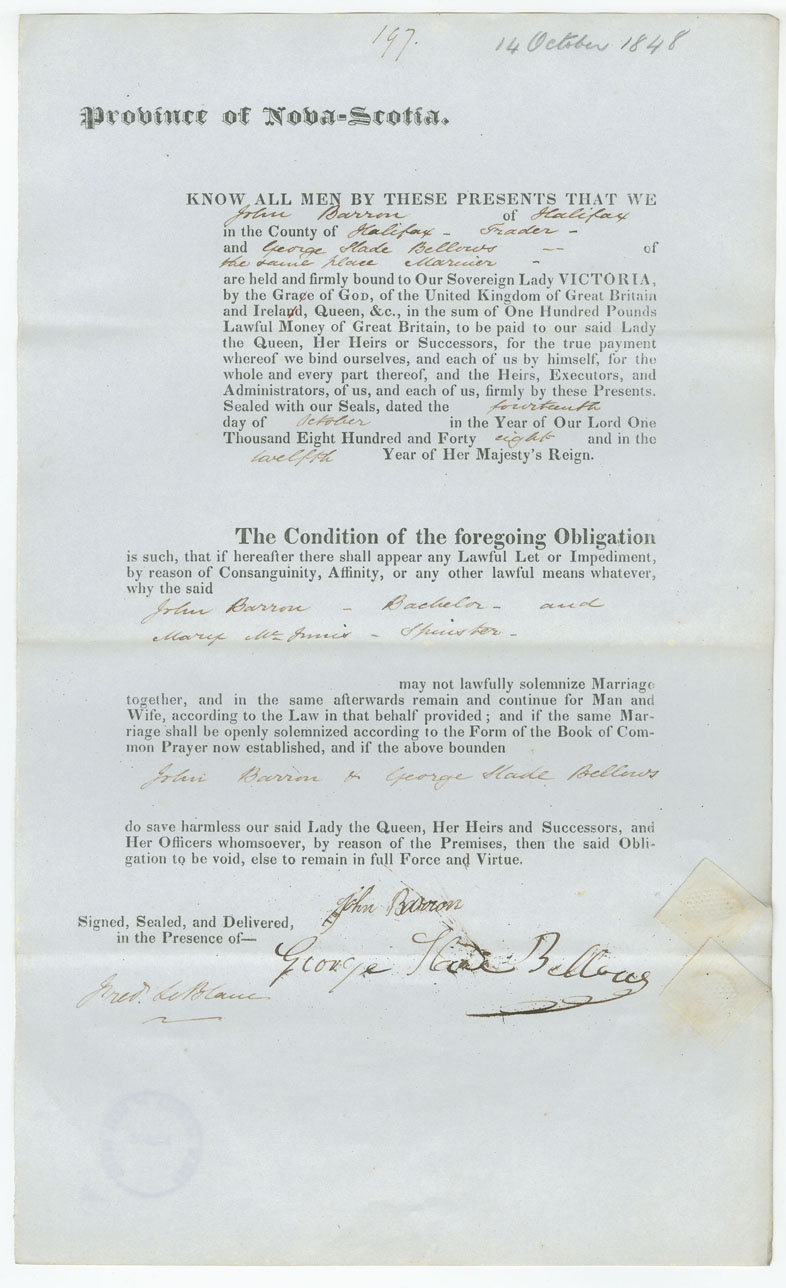 197.
14 October 1848
Province of Nova-Scotia.
KNOW ALL MEN BY THESE PRESENTS THAT WE
John Barron of Halifax
in the County of Halifax - Trader -
and George Slade Bellows -- of
the same place Mariner -
are held and firmly bound to Our Sovereign Lady VICTORIA,
by the Grace of GOD, of the United Kingdom of Great Britain
and Ireland, Queen, &c., in the sum of One Hundred Pounds
Lawful Money of Great Britain, to be paid to our said Lady
the Queen, Her Heirs or Successors, for the true payment
whereof we bind ourselves, and each of us by himself, for the
whole and every part thereof, and the Heirs, Executors, and
Administrators, of us, and each of us, firmly by these Presents.
Sealed with our Seals, dated the fourteenth
day of October in the Year of Our Lord One
Thousand Eight Hundred and Forty eight and in the
twelfth Year of Her Majesty's Reign.
The Condition of the foregoing Obligation
is such, that if hereafter there shall appear any Lawful Let or Impediment,
by reason of Consanguinity, Affinity, or any other lawful means whatever,
why the said
John Barron - Bachelor - and
Mary McInnis - Spinster -
may not lawfully solemnize Marriage
together, and in the same afterwards remain and continue for Man and
Wife, according to the Law in that behalf provided ; and if the same Mar-
riage shall be openly solemnized according to the Form of the Book of Com-
mon Prayer now established, and if the above bounden
John Barron & George Slade Bellows
do save harmless our said Lady the Queen, Her Heirs and Successors, and
Her Officers whomsoever, by reason of the Premises, then the said Obli-
gation to be void, else to remain in full Force and Virtue.
John Barron
Signed, Sealed, and Delivered,
in the Presence of—
George Slade Bellows
Fred. LeBlanc